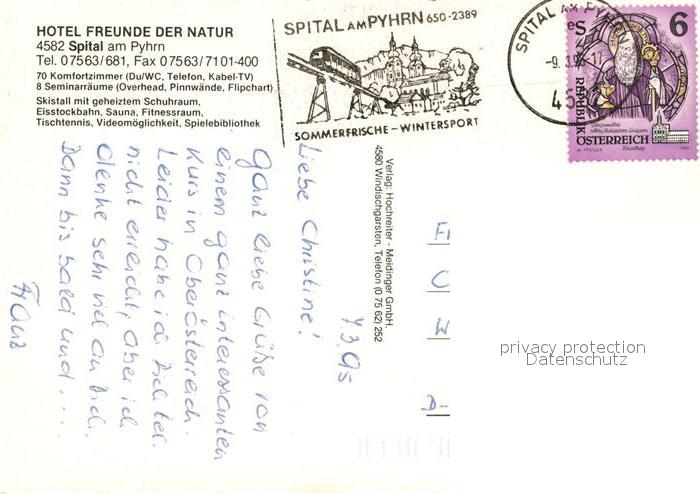 HOTEL FREUNDE DER NATUR
4582 Spital am Pyhrn
Tel. 07563/681, Fax 07563/7101-400
70 Komfortzimmer (Du/WC, Telefon, Kabel-TV)
8 Seminarräume (Overhead, Pinnwände, Flipchart)
Skistall mit geheiztem Schuhraum,
Eisstockbahn, Sauna, Fitnessraum,
Tischtennis, Videomöglichkeit, Spielebibliothek
SPITAL AM PYHRN 650-2389
SOMMERFRISCHE - WINTERSPORT
SPITAL AM PYHRN
6
REPUBLIK
ÖSTERREICH
7.3.95
Liebe Christine!
Ganz liebe Grüße von
einem ganz interessanten
Kurs in Oberösterreich.
Leider habe ich Dich tel.
nicht erreicht, aber ich
denke sehr viel an Dich.
Dann bis bald und ...
Franz
Verlag: Hochreiter - Meidinger GmbH.
4580 Windischgarsten, Telefon (0 75 62) 252
C
W
D-
privacy protection
Datenschutz